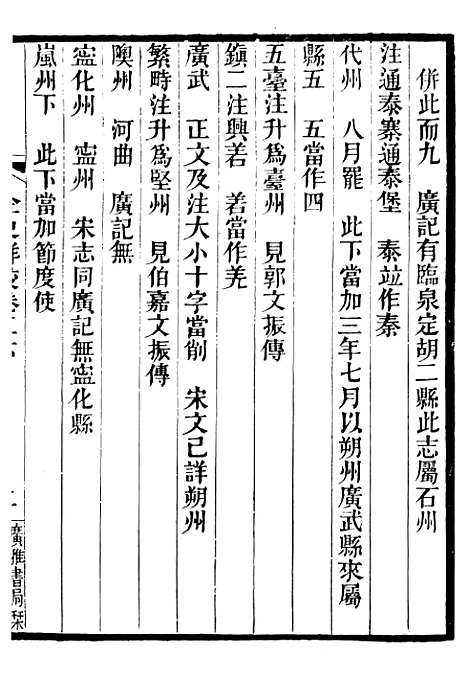 併此而九　廣記有臨泉定胡二縣此志屬石州
注通泰寨通泰堡　泰竝作秦
代州　八月罷　此下當加三年七月以朔州廣武縣來屬
縣五　五當作四
五臺注升爲臺州　見郭文振傳
鎮二注興善　善當作羌
廣武　正文及注大小十字當削　宋文已詳朔州
繁畤注升爲堅州　見伯嘉文振傳
隩州　河曲　廣記無
寧化州　寧州　宋志同廣記無寧化縣
嵐州下　此下當加節度使
廣雅書局栞